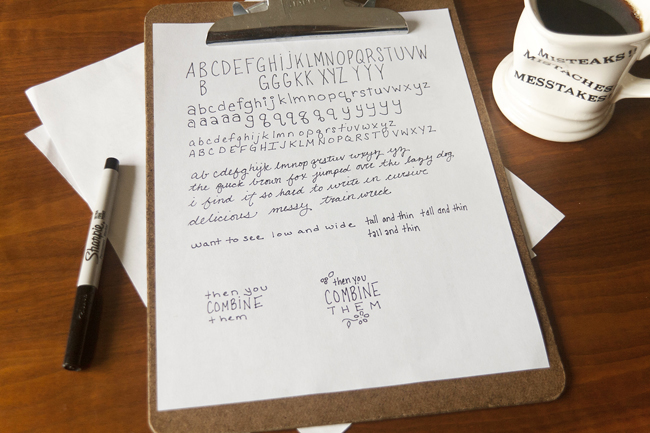 ABCDEFGHIJKLMNOPQRSTUVW
B GGGKK XYZ YYY
abcdefghijklmnopqrstuvwxyz
aaaaagqqq8qqyyyyy
abcdefghijklmnopqrstuvwxyz
ABCDEFGHIJKLMNOPQRSTUVWXYZ
abcdefghijk lmnopqrstuv wxyz yz
the quick brown fox jumped over the lazy dog
i find it so hard to write in cursive
delicious messy trainwreck
want to see low and wide tall and thin tall and thin
tall and thin
then you
COMBINE
them
then you
COMBINE
THEM
Sharpie
MISTEAKS
MISTACHES
MESSTAKES